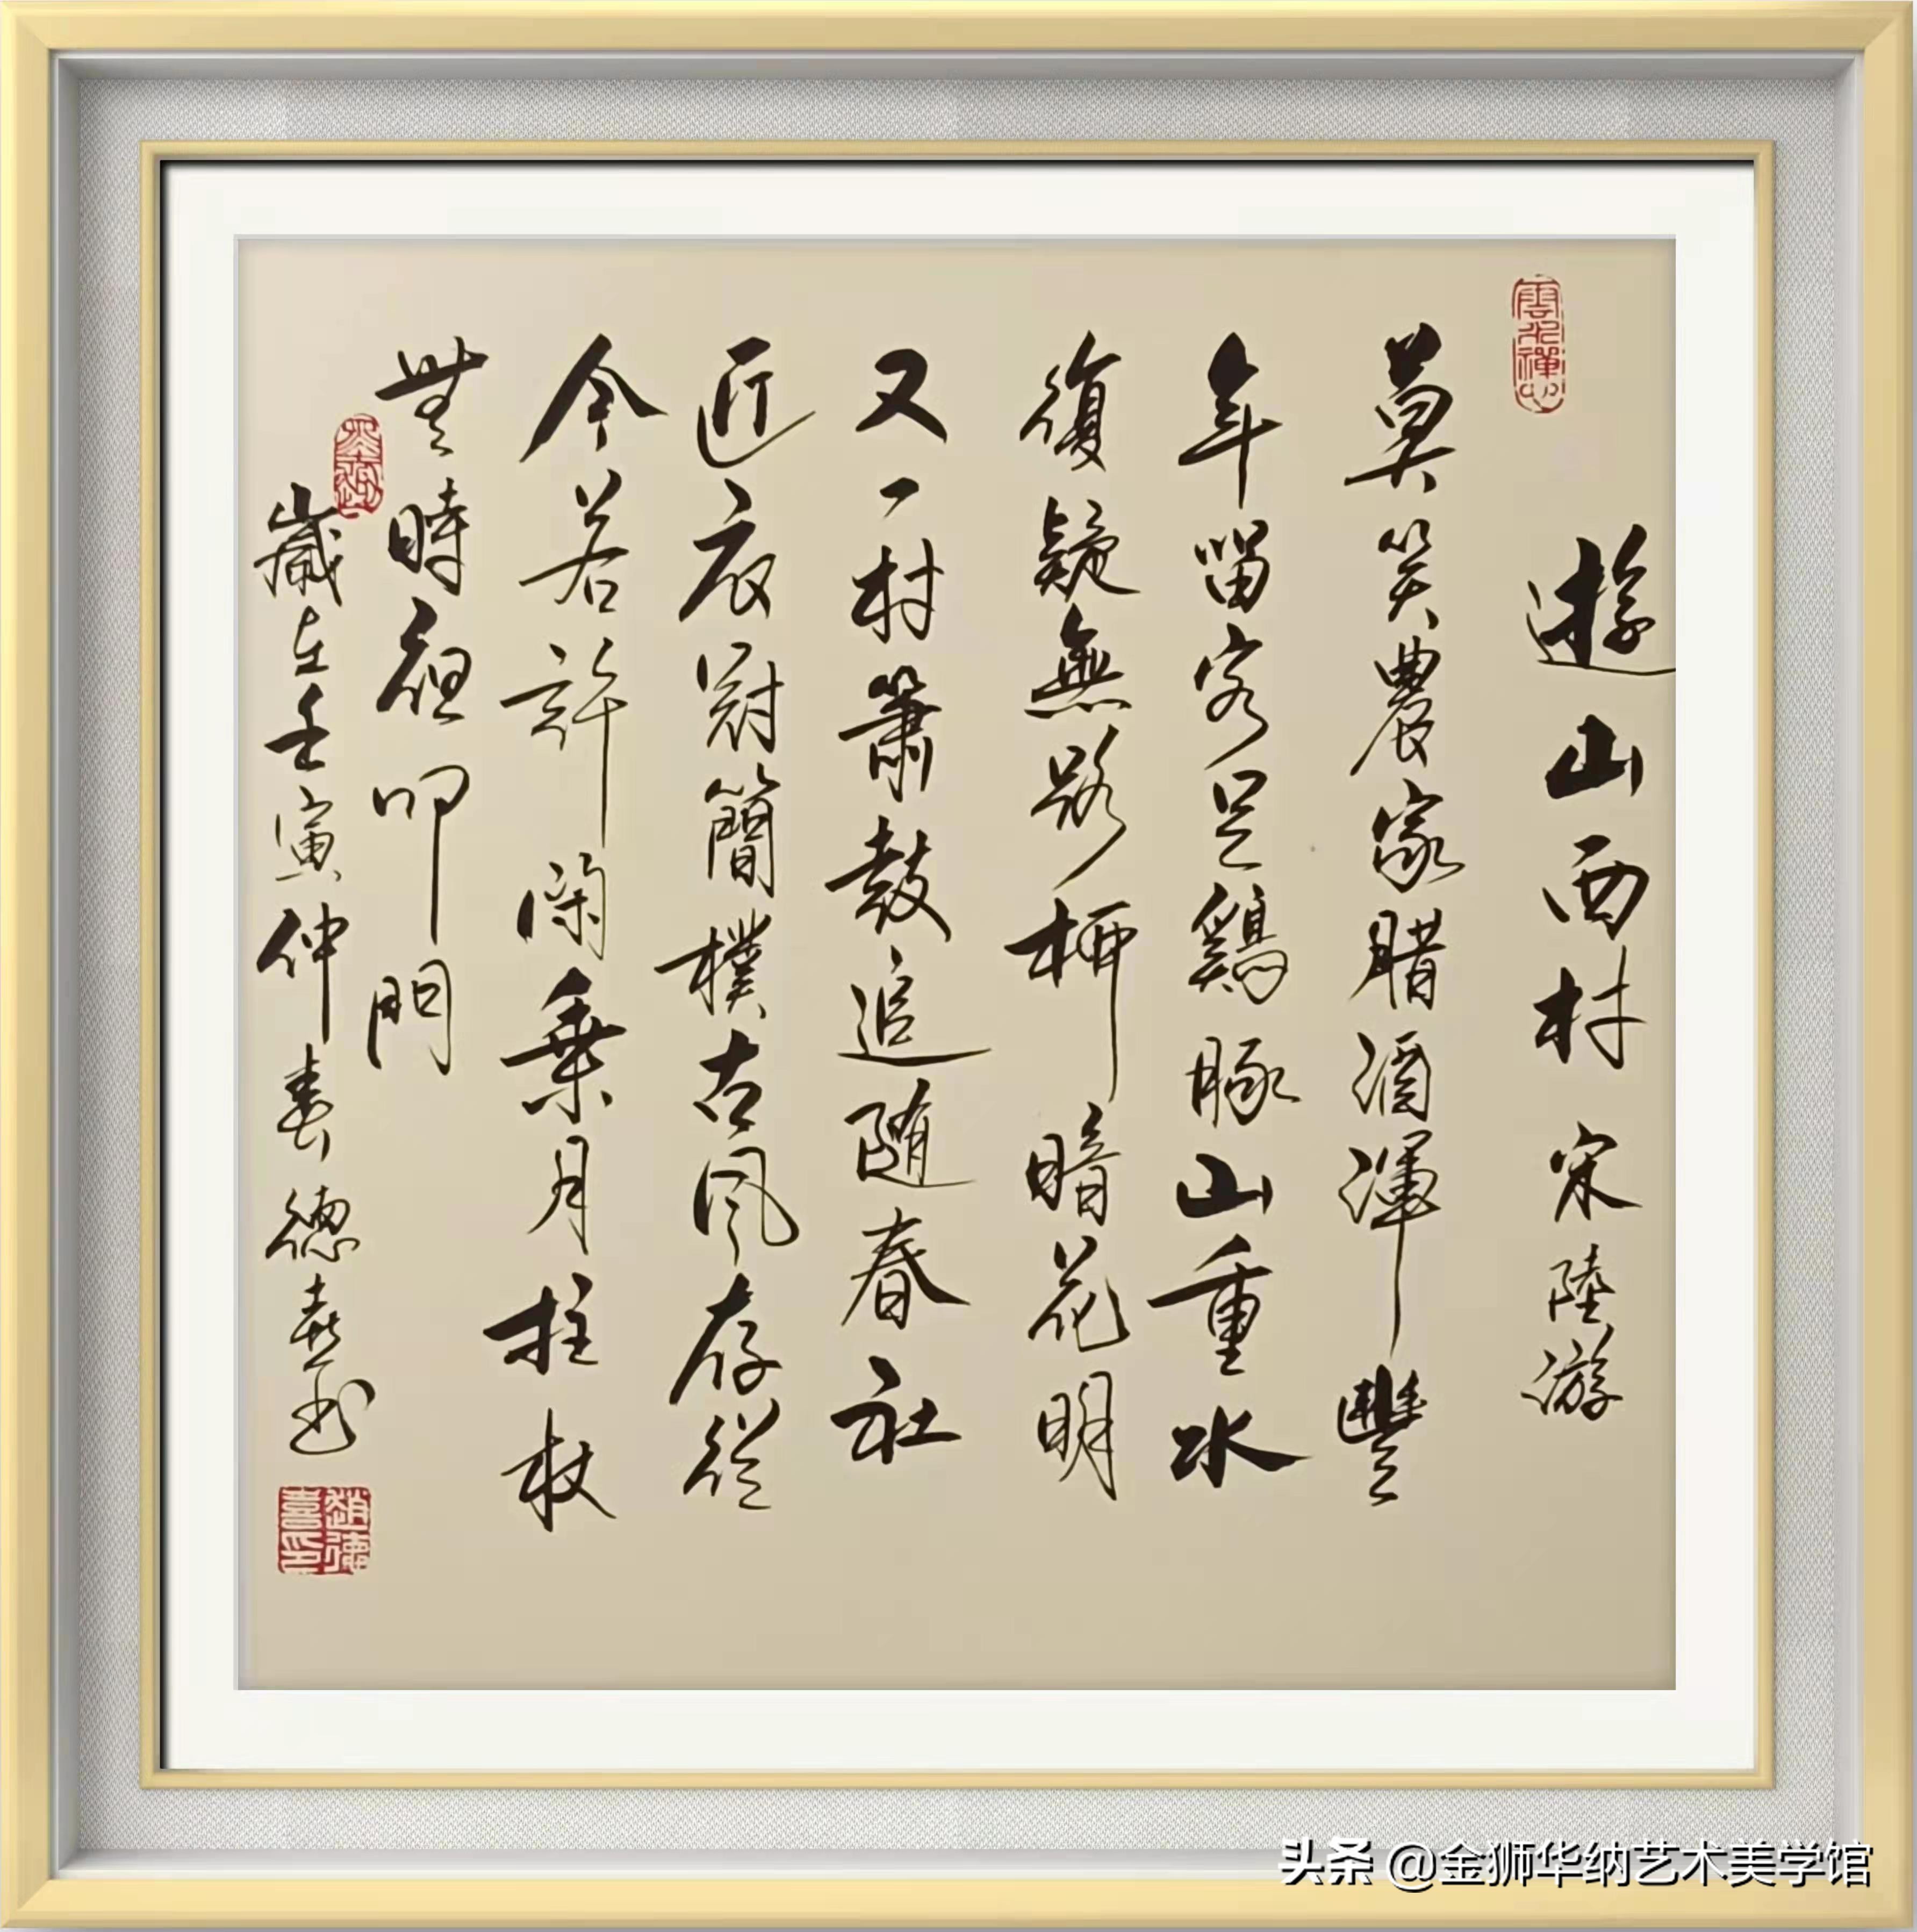 遊山西村 宋 陸游
莫笑農家腊酒渾豐
年留客足鷄豚山重水
復疑無路柳暗花明
又一村簫鼓追隨春社
近衣冠簡樸古風存從
今若許閑乘月拄杖
無時夜叩門
歲在壬寅仲春德喜书
雲水禪心
趙德喜印
头条 @金狮华纳艺术美学馆